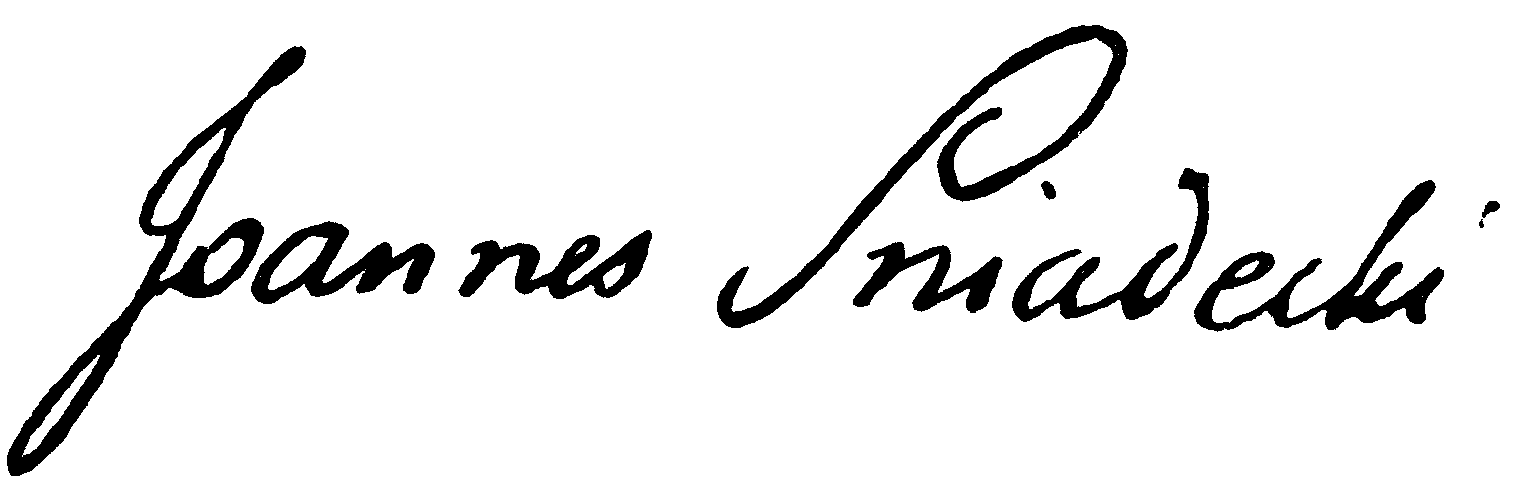 Joannes Sniadecki